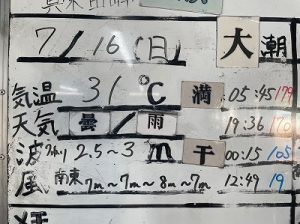 7/16(日) 大潮
気温 31℃ 満 05:45 179
天気 曇/雨 19:36 170
波 うねり 2.5~3m 干 00:15 105
風 南東 7m~7m~8m~7m 12:49 19